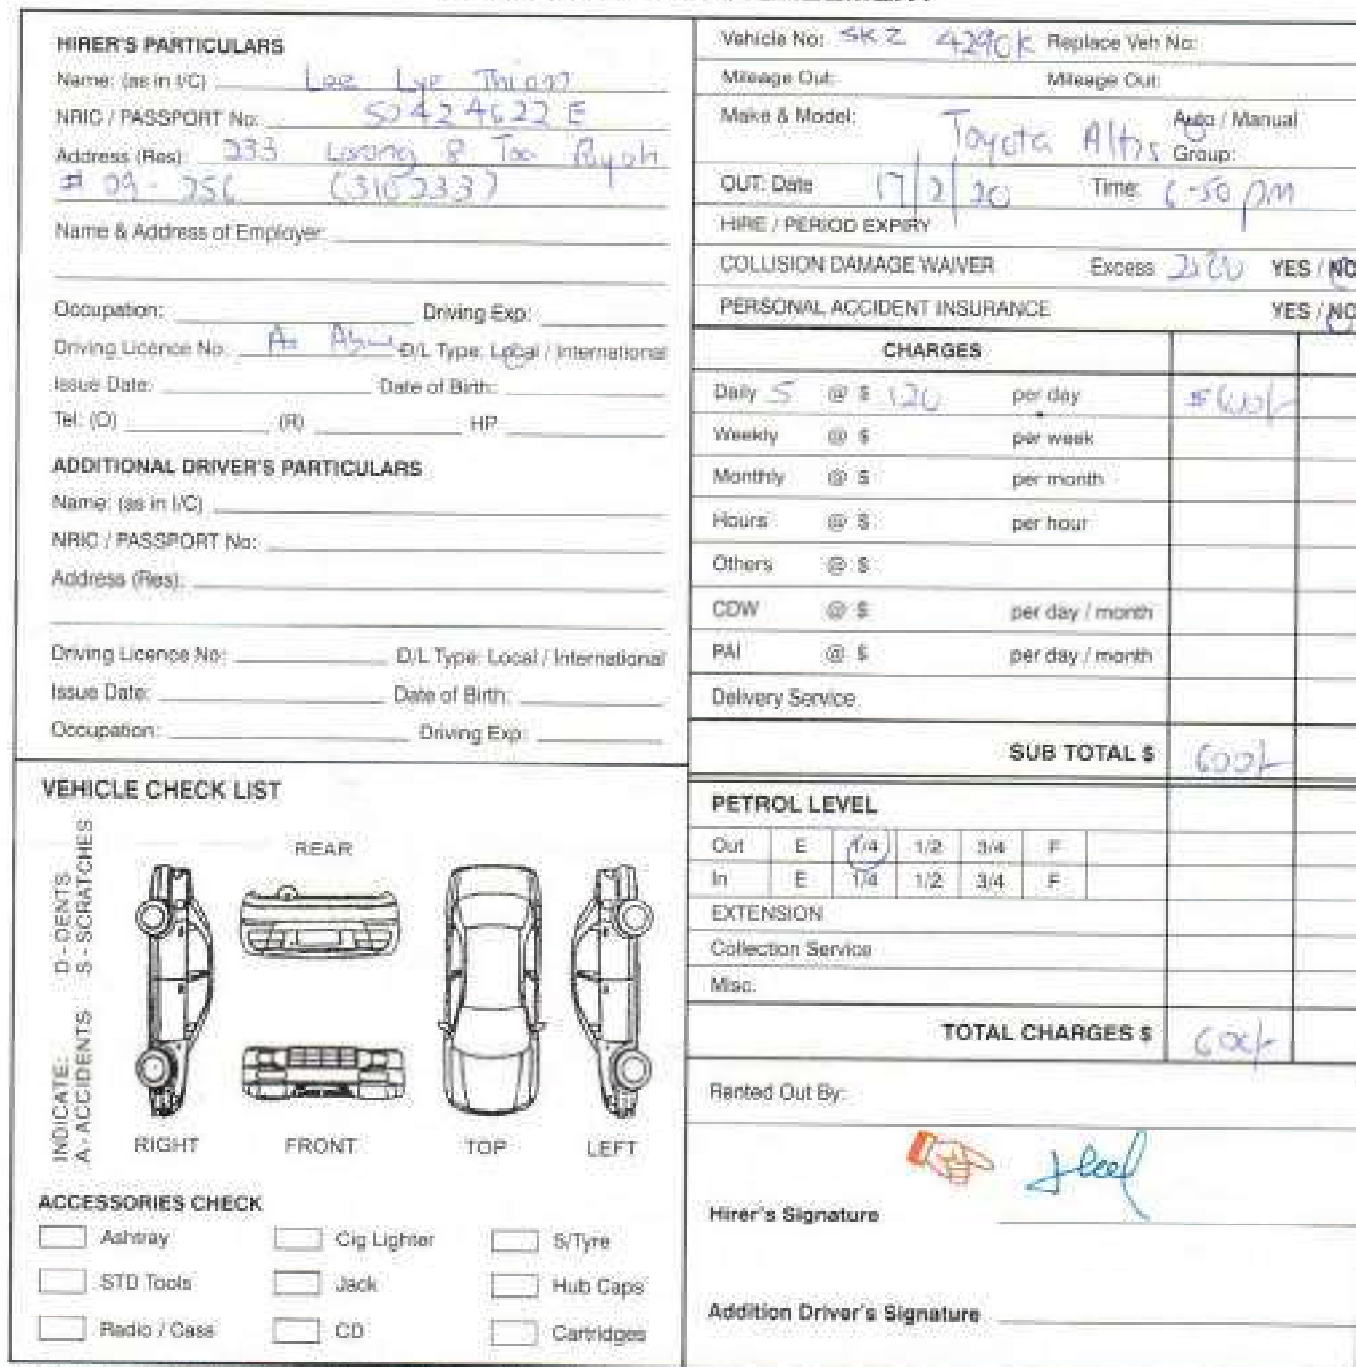 HIRER'S PARTICULARS
Name: (as in I/C) Lee Lye Thiam
NRIC / PASSPORT No: S0424622E
Address (Res): 233 Lorong 8 Toa Payoh
# 09 - 256 (310233)
Name & Address of Employer:
Occupation: Driving Exp:
Driving Licence No: As Above D/L Type: Local / International
Issue Date: Date of Birth:
Tel: (O) (R) HP
ADDITIONAL DRIVER'S PARTICULARS
Name: (as in I/C)
NRIC / PASSPORT No:
Address (Res):
Driving Licence No: D/L Type: Local / International
Issue Date: Date of Birth:
Occupation: Driving Exp:
VEHICLE CHECK LIST
INDICATE: D - DENTS
A - ACCIDENTS S - SCRATCHES
REAR
RIGHT FRONT TOP LEFT
ACCESSORIES CHECK
Ashtray Cig Lighter S/Tyre
STD Tools Jack Hub Caps
Radio / Cass CD Cartridges
Vehicle No: SKZ 4290K Replace Veh No:
Mileage Out: Mileage Out:
Make & Model: Toyota Altis Auto / Manual
Group:
OUT: Date 17/2/20 Time: 6-50 pm
HIRE / PERIOD EXPIRY
COLLISION DAMAGE WAIVER Excess YES / NO
PERSONAL ACCIDENT INSURANCE YES / NO
CHARGES
Daily 5 @ $ 120 per day $600/-
Weekly @ $ per week
Monthly @ $ per month
Hours @ $ per hour
Others @ $
CDW @ $ per day / month
PAI @ $ per day / month
Delivery Service
SUB TOTAL $ 600/-
PETROL LEVEL
Out E 1/4 1/2 3/4 F
In E 1/4 1/2 3/4 F
EXTENSION
Collection Service
Misc:
TOTAL CHARGES $ 600/-
Rented Out By:
Hirer's Signature
Addition Driver's Signature